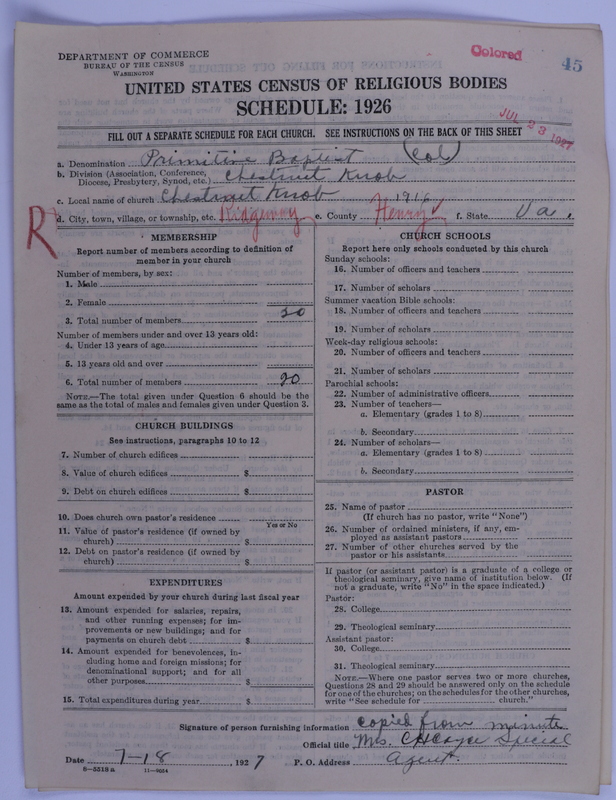 DEPARTMENT OF COMMERCE
BUREAU OF THE CENSUS
WASHINGTON
Colored
45
UNITED STATES CENSUS OF RELIGIOUS BODIES
SCHEDULE: 1926
JUL 23 1927
FILL OUT A SEPARATE SCHEDULE FOR EACH CHURCH. SEE INSTRUCTIONS ON THE BACK OF THIS SHEET
a. Denomination Primitive Baptist (Col)
b. Division (Association, Conference, Diocese, Presbytery, Synod, etc.) Chestnut Knob
c. Local name of church Chestnut Knob 1916
d. City, town, village, or township, etc. Ridgeway e. County Henry f. State Va.
R
MEMBERSHIP
Report number of members according to definition of
member in your church
Number of members, by sex:
1. Male
2. Female
3. Total number of members 20
Number of members under and over 13 years old:
4. Under 13 years of age
5. 13 years old and over
6. Total number of members 20
NOTE.—The total given under Question 6 should be
same as the total of males and females given under Question 3.
CHURCH BUILDINGS
See instructions, paragraphs 10 to 12
7. Number of church edifices
8. Value of church edifices $
9. Debt on church edifices $
10. Does church own pastor's residence
Yes or No
11. Value of pastor's residence (if owned by
church) $
12. Debt on pastor's residence (if owned by
church) $
EXPENDITURES
Amount expended by your church during last fiscal year
13. Amount expended for salaries, repairs,
and other running expenses; for im-
provements or new buildings; and for
payments on church debt $
14. Amount expended for benevolences, in-
cluding home and foreign missions; for
denominational support; and for all
other purposes $
15. Total expenditures during year $
CHURCH SCHOOLS
Report here only schools conducted by this church
Sunday schools:
16. Number of officers and teachers
17. Number of scholars
Summer vacation Bible schools:
18. Number of officers and teachers
19. Number of scholars
Week-day religious schools:
20. Number of officers and teachers
21. Number of scholars
Parochial schools:
22. Number of administrative officers
23. Number of teachers—
a. Elementary (grades 1 to 8)
b. Secondary
24. Number of scholars—
a. Elementary (grades 1 to 8)
b. Secondary
PASTOR
25. Name of pastor
(If church has no pastor, write "None")
26. Number of ordained ministers, if any, em-
ployed as assistant pastors
27. Number of other churches served by the
pastor or his assistants
If pastor (or assistant pastor) is a graduate of a college or
theological seminary, give name of institution below. (If
not a graduate, write "No" in the space indicated.)
Pastor:
28. College
29. Theological seminary
Assistant pastor:
30. College
31. Theological seminary
NOTE.—Where one pastor serves two or more churches,
Questions 28 and 29 should be answered only on the schedule
for one of the churches; on the schedules for the other churches,
write "See schedule for church."
Signature of person furnishing information copied from minute
Official title Mrs. Special
Date 7-18, 1927 P. O. Address Agent.
8-5518a 11-9054